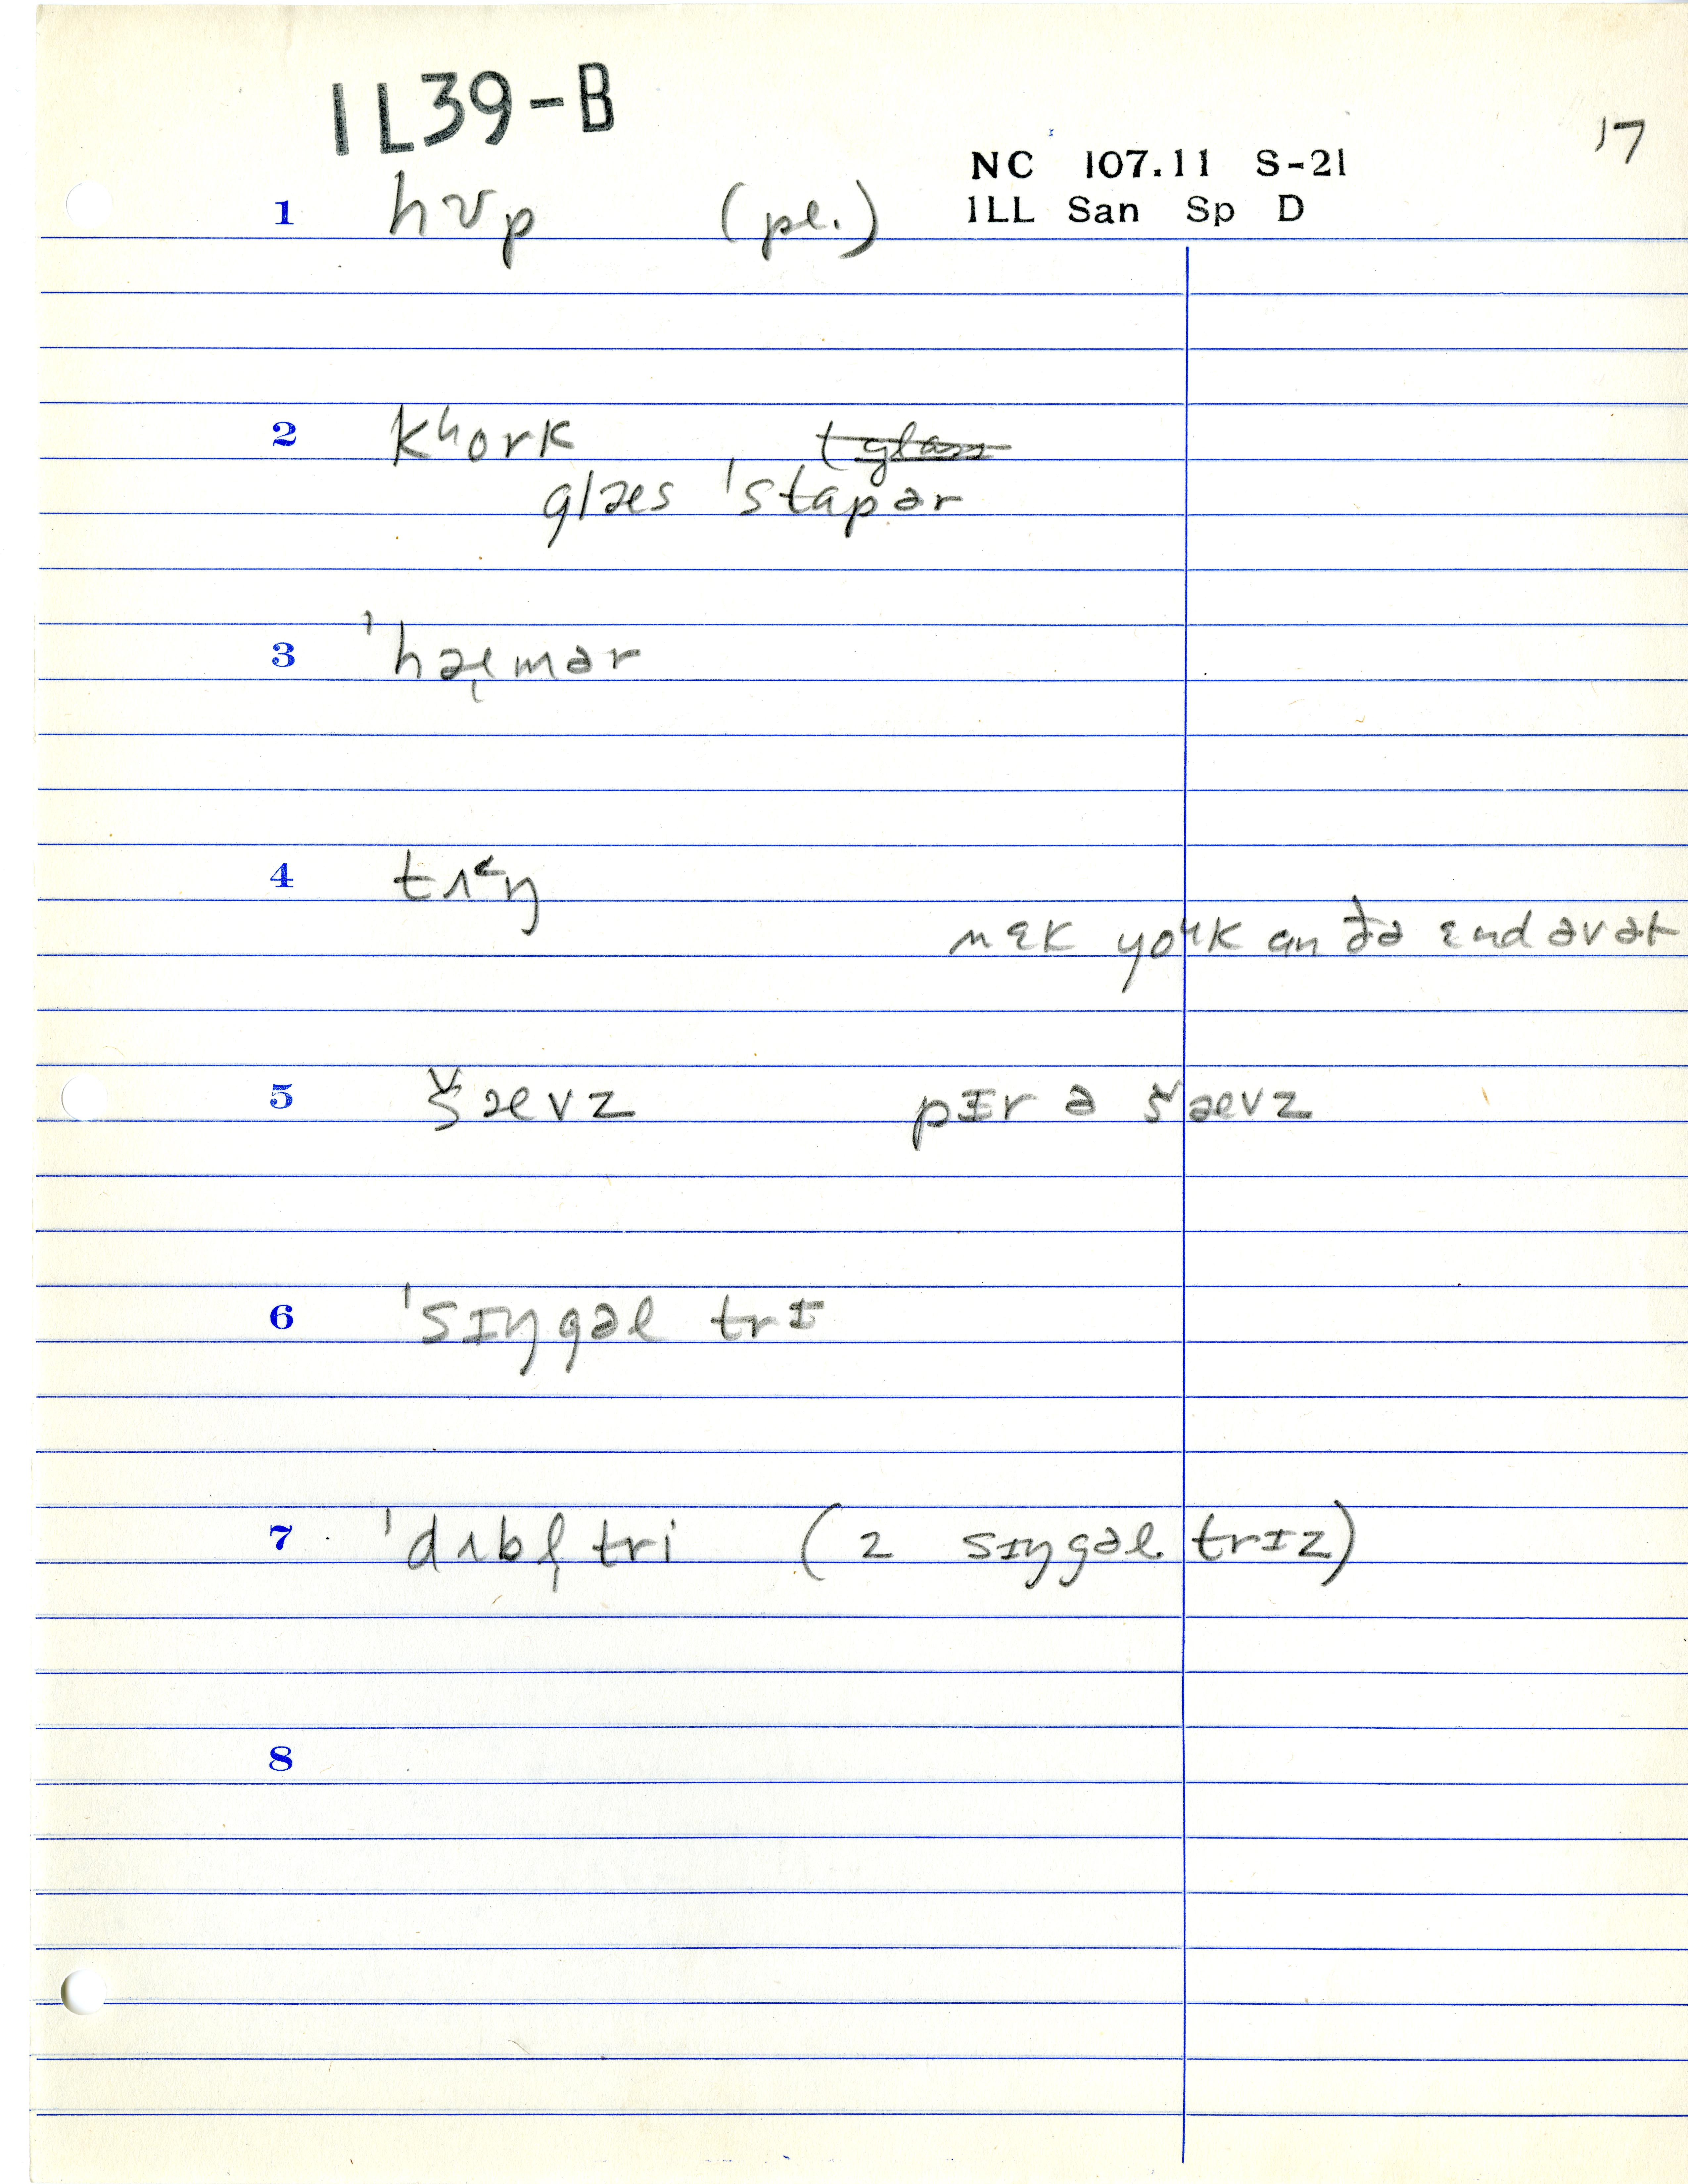 IL39-B
17
NC 107.11 S-21
ILL San Sp D
1 hʊp (pl.)
2 kʰork t̶ ̶g̶l̶a̶s̶s̶
glæs ˈstapər
3 ˈhæ̨mər
4 tʌ˂ŋ
nɛk yoᵘk an ðə ɛnd əv ət
5 š̌ævz pɪr ə šævz
6 ˈsɪŋgəl trɪ
7 ˈdʌbl̩ tri (2 sɪŋgəl trɪz)
8